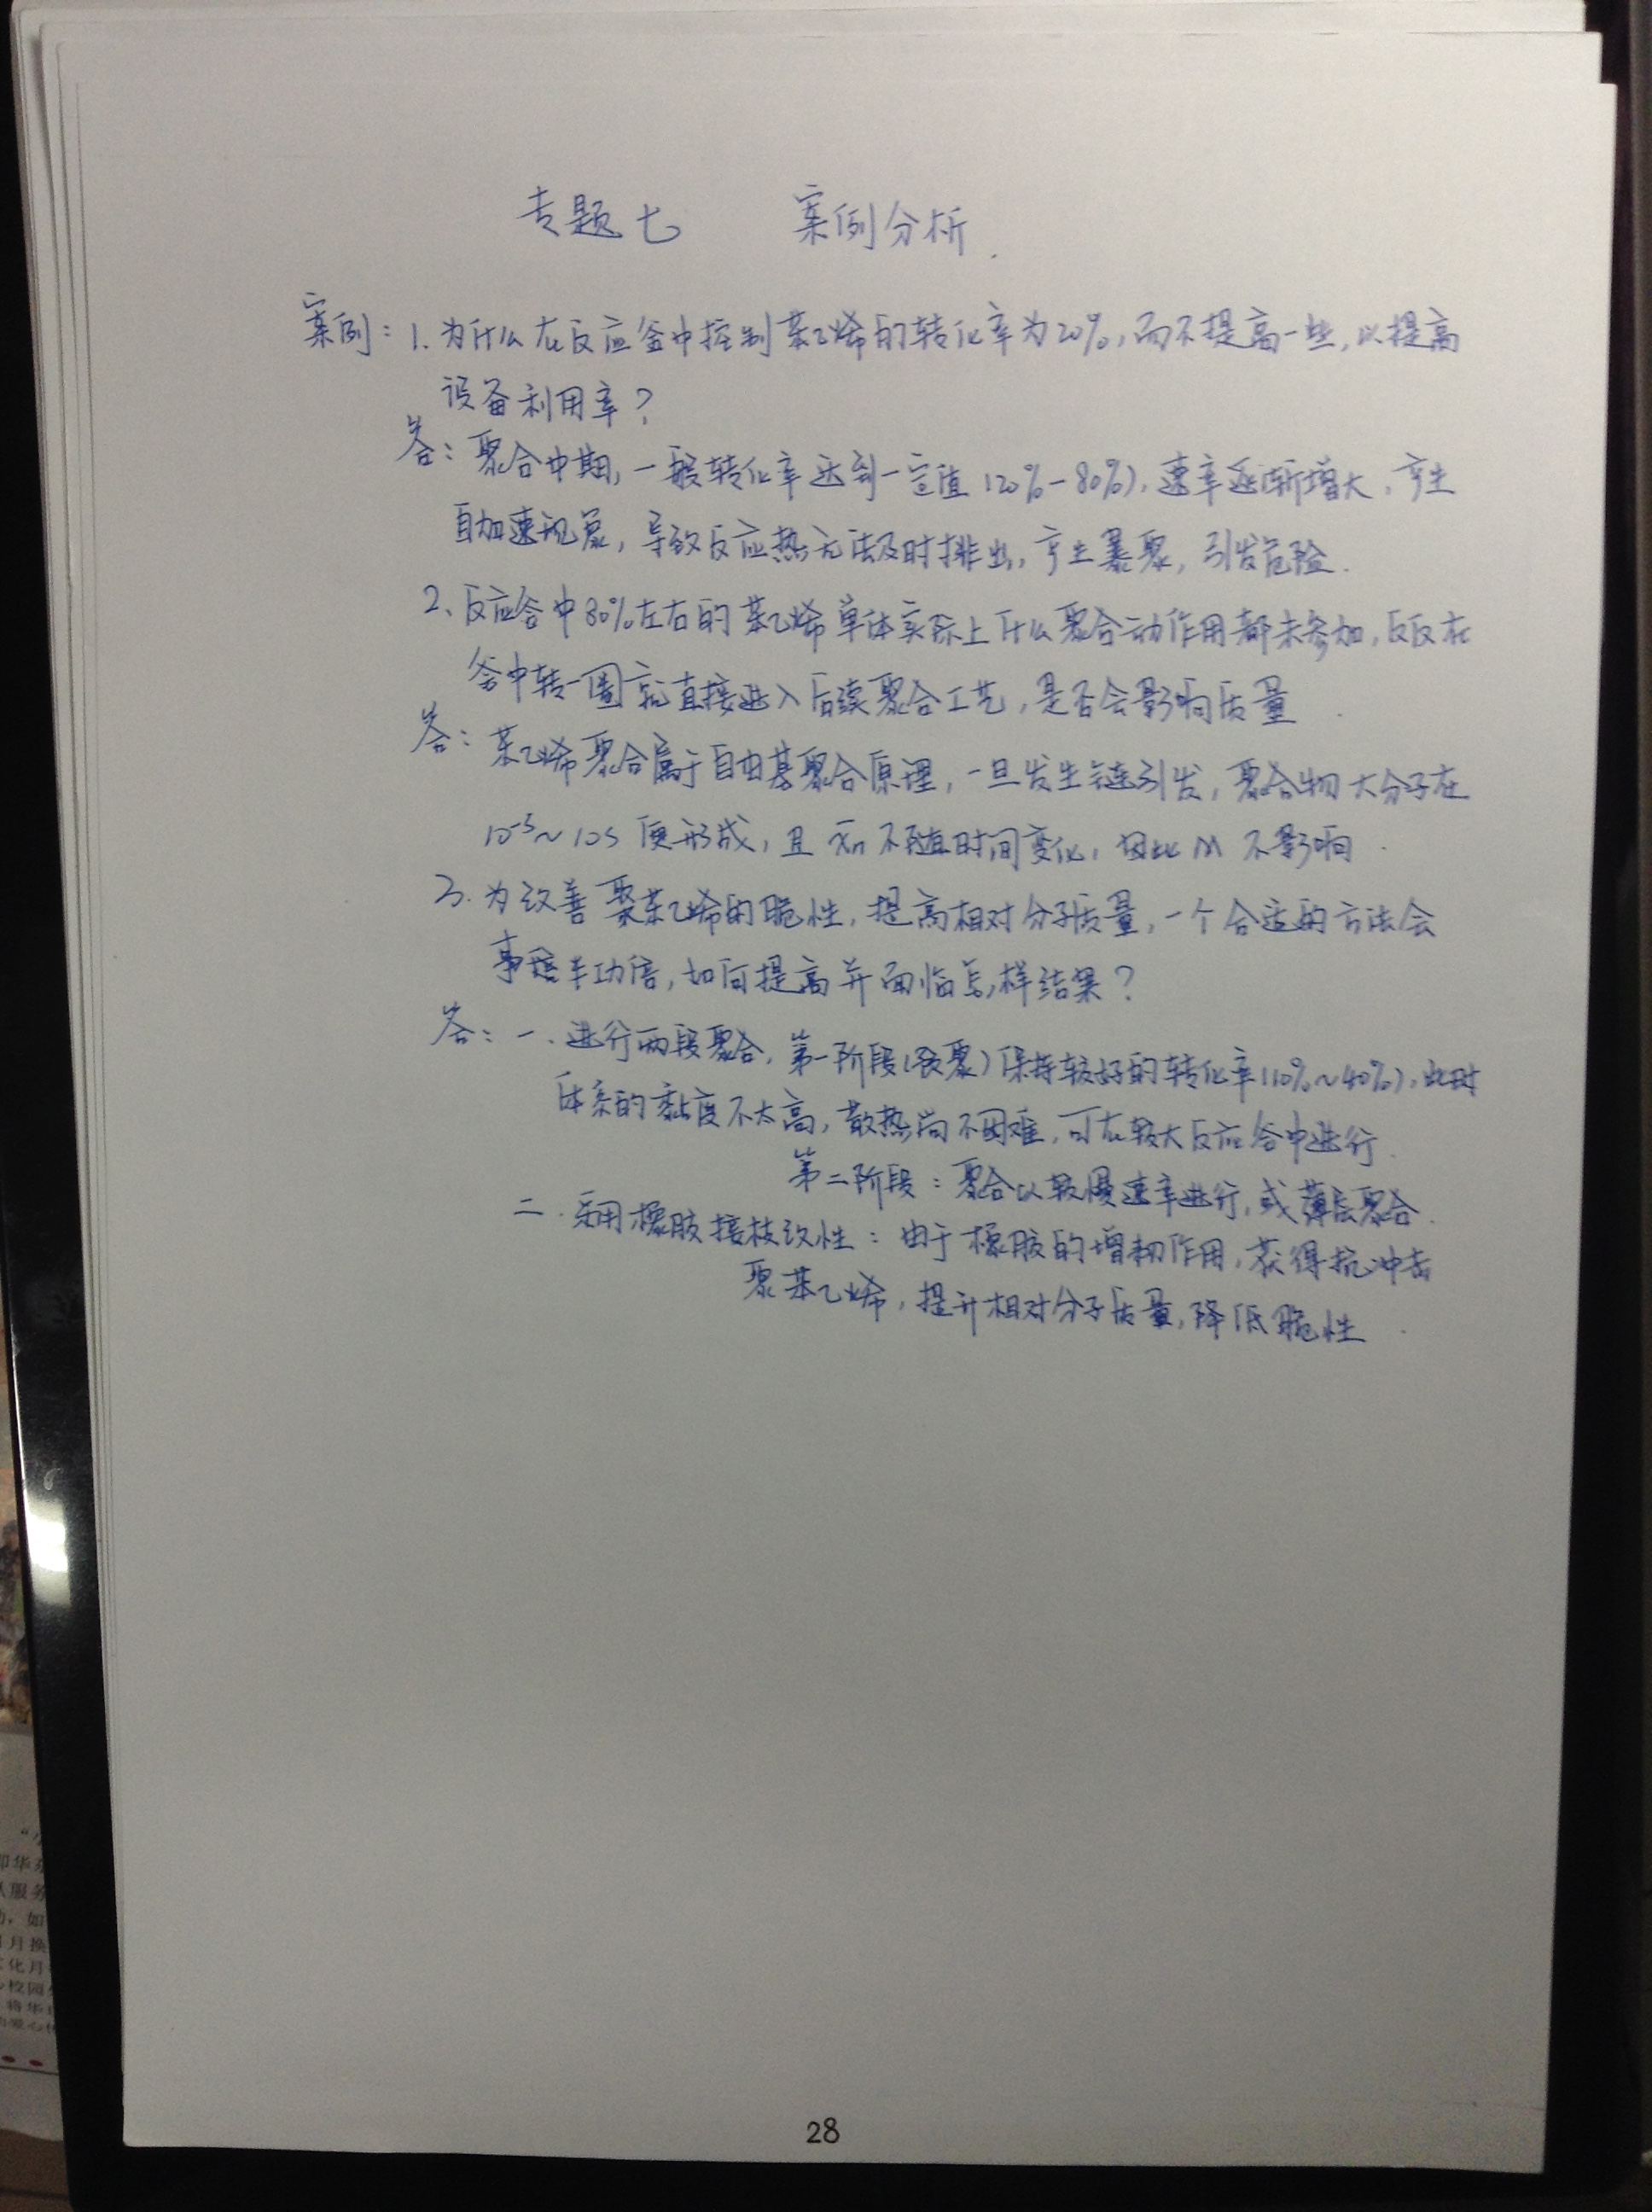 专题七 案例分析.
案例：1. 为什么在反应釜中控制苯乙烯的转化率为20%，而不提高一些，以提高
设备利用率？
答：聚合中期，一般转化率达到一定值（20%-80%），速率逐渐增大，产生
自加速现象，导致反应热无法及时排出，产生暴聚，引发危险.
2、反应釜中80%左右的苯乙烯单体实际上什么聚合动作用都未参加，仅仅在
釜中转一圈就直接进入后续聚合工艺，是否会影响质量.
答：苯乙烯聚合属于自由基聚合原理，一旦发生链引发，聚合物大分子在
10⁻⁵~10s 便形成，且 不随时间变化，因此M 不影响.
3. 为改善聚苯乙烯的脆性，提高相对分子质量，一个合适的方法会
事半功倍，如何提高并面临怎样结果？
答：一. 进行两段聚合，第一阶段（预聚）保持较好的转化率（10%~40%），此时
体系的黏度不太高，散热尚不困难，可在较大反应釜中进行.
第二阶段：聚合以较慢速率进行，或薄层聚合.
二. 采用橡胶接枝改性：由于橡胶的增韧作用，获得抗冲击
聚苯乙烯，提升相对分子质量，降低脆性.
月换
化月
校园
28